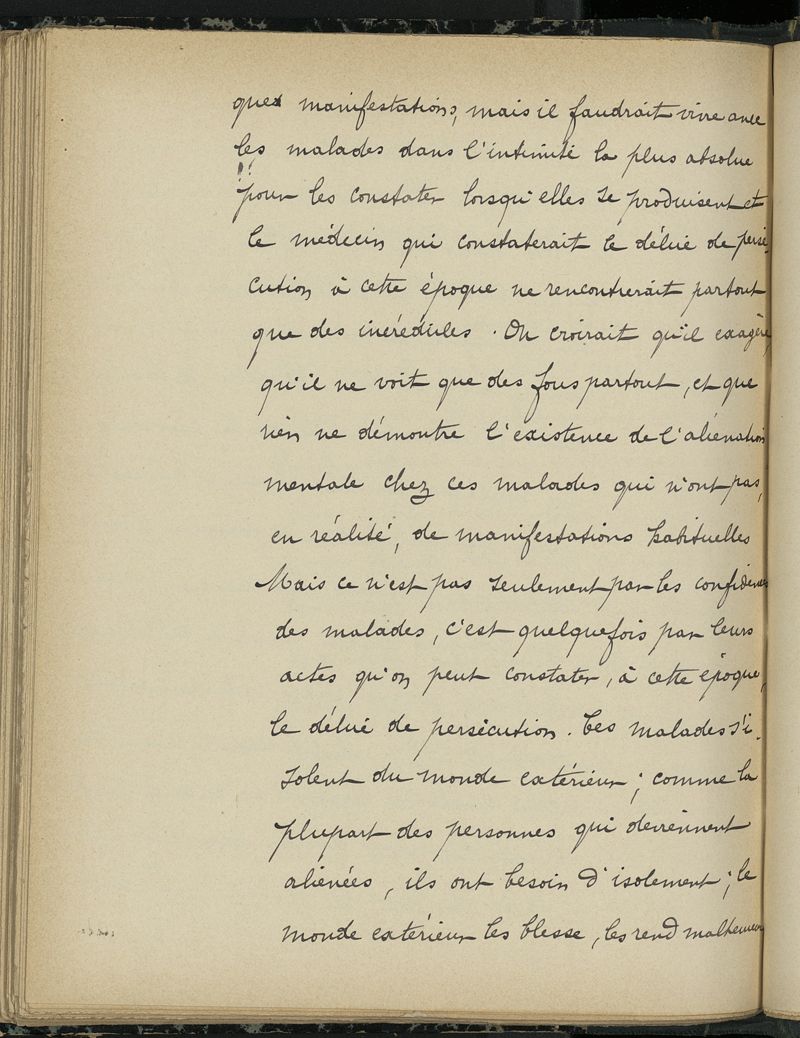 ques manifestations, mais il faudrait vivre avec
les malades dans l'intimité la plus absolue
pour les constater lorsqu'elles se produisent et
le médecin qui constaterait le délire de persé-
cution à cette époque ne rencontrerait partout
que des incrédules. On croirait qu'il exagère,
qu'il ne voit que des fous partout, et que
rien ne démontre l'existence de l'aliénation
mentale chez ces malades qui n'ont pas,
en réalité, de manifestations habituelles
Mais ce n'est pas seulement par les confidences
des malades, c'est quelquefois par leurs
actes qu'on peut constater, à cette époque,
le délire de persécution. Ces malades s'i-
solent du monde extérieur; comme la
plupart des personnes qui deviennent
aliénées, ils ont besoin d'isolement; le
monde extérieur les blesse, les rend malheureux